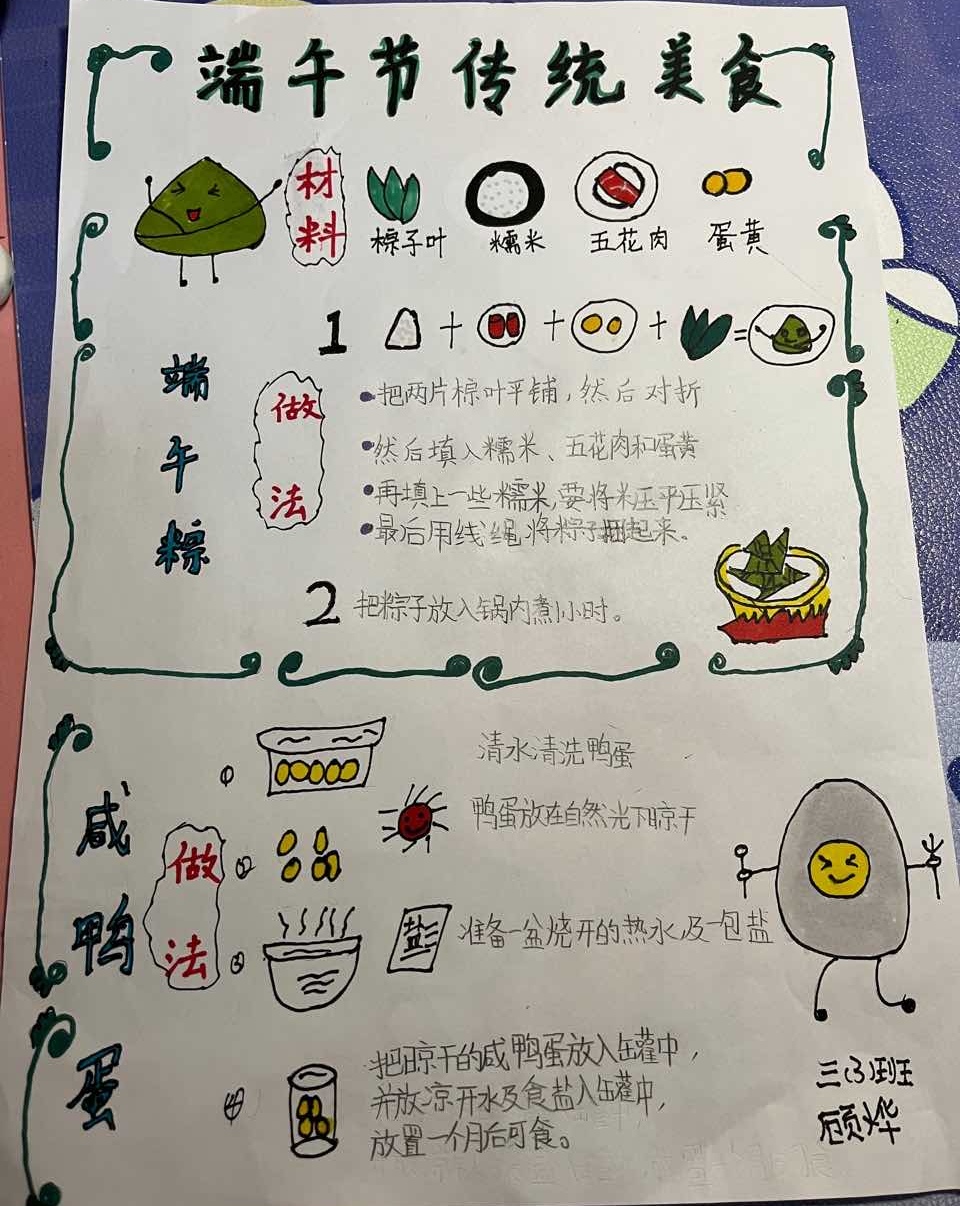 端午节传统美食
材料
棕子叶 糯米 五花肉 蛋黄
端午粽
1 + + + =
做法
•把两片棕叶平铺，然后对折
•然后填入糯米、五花肉和蛋黄
•再填上一些糯米,要将米压平压紧
•最后用线绳将粽子捆起来。
2 把粽子放入锅内煮1小时。
咸鸭蛋
做法
① 清水清洗鸭蛋
② 鸭蛋放在自然光下晾干
③ 盐 准备一盆烧开的热水及一包盐
④ 把晾干的咸鸭蛋放入缶灌中，
并放凉开水及食盐入缶灌中，
放置一个月后可食。
三(3)班
顾烨